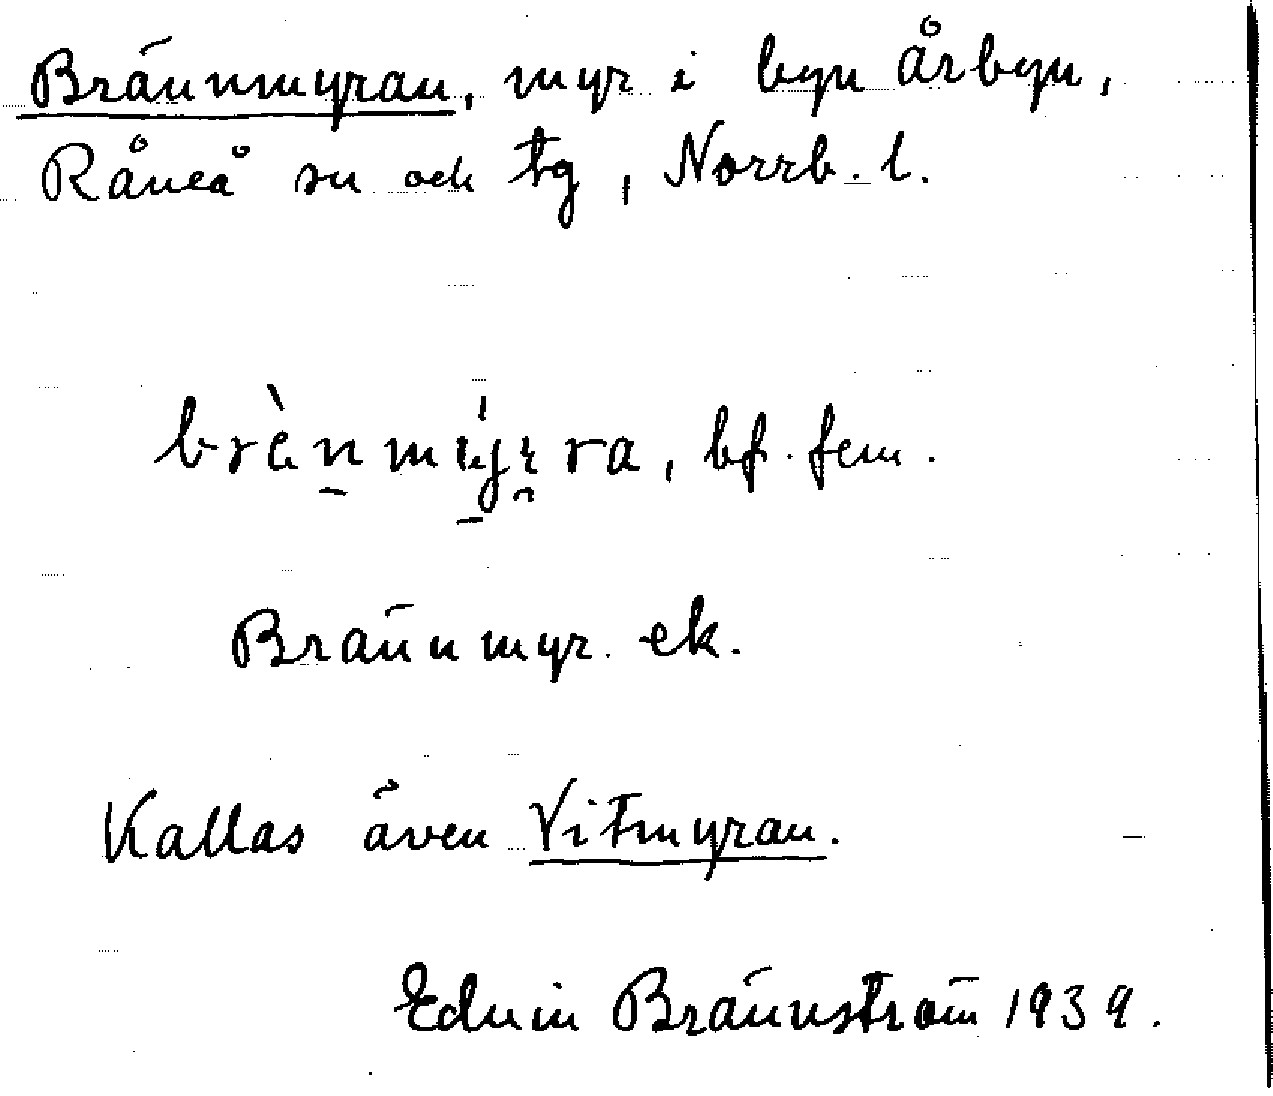 Brännmyran, myr i byn Årbyn,
Råneå sn och tg, Norrb. l.
bf. fem.
Brännmyr. ek.
Kallas även Vitmyran.
Edvin Brännström 1939.